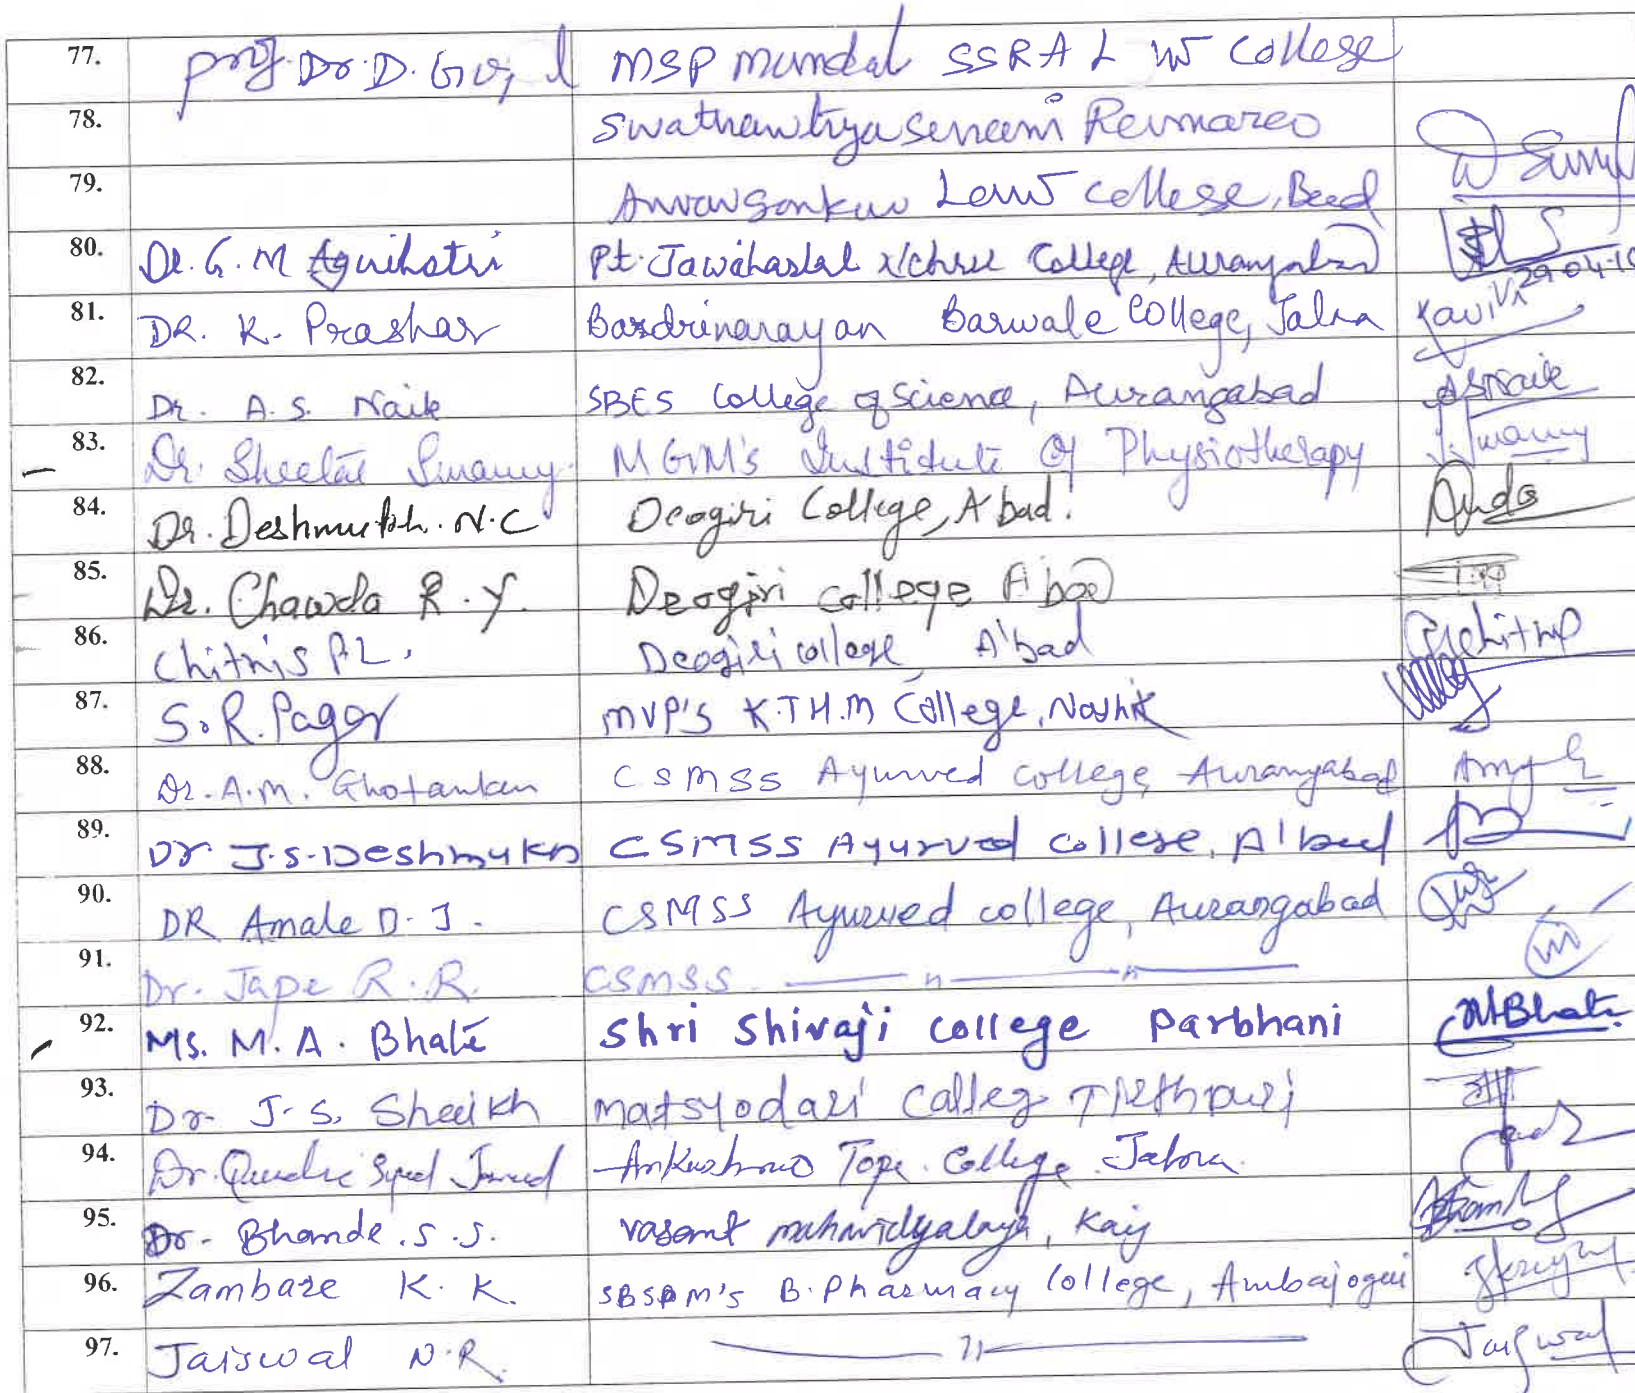 77. Prof. Dr. D. G. MSP mandal SSRA L W College
78. Swathawtrya
79. Law College, Beed
80. Dr. G. M Agnihotri Pt. Jawaharlal Nehru College, Aurangabad 29-04-16
81. DR. K. Prashar Bardrinarayan Barwale College, Jalna
82. Dr. A. S. Naik SBES College of Science, Aurangabad ASNaik
83. Dr. Sheetal Swamy. MGM's Institute Of Physiotherapy Swamy
84. Dr. Deshmukh. N.C Deogiri College, A'bad.
85. Dr. Chawda R. Y. Deogiri college A'bad
86. Chitnis P.L. Deogiri college, A'bad
87. S. R. Pagar MVP's K.T.H.M College, Nashik
88. Dr. A.M. Ghotankar CSMSS Ayurved college, Aurangabad
89. Dr. J.S. Deshmukh CSMSS Ayurved College, A'bad
90. DR Amale D. J. CSMSS Ayurved college, Aurangabad
91. Dr. Jape R. R. CSMSS — " — " —
92. Ms. M. A. Bhale Shri Shivaji College Parbhani
93. Dr. J. S. Sheikh Matsyodari Colleg Tirthpuri
94. Dr. Quadri Syed Javed Ankushrao Tope College Jalna.
95. Dr. Bhamde. S. S. Vasant mahavidyalaya, Kaij
96. Zambare K. K. SBSPM's B. Pharmacy College, Ambajogai
97. Jaiswal N. R. — " — Jaiswal